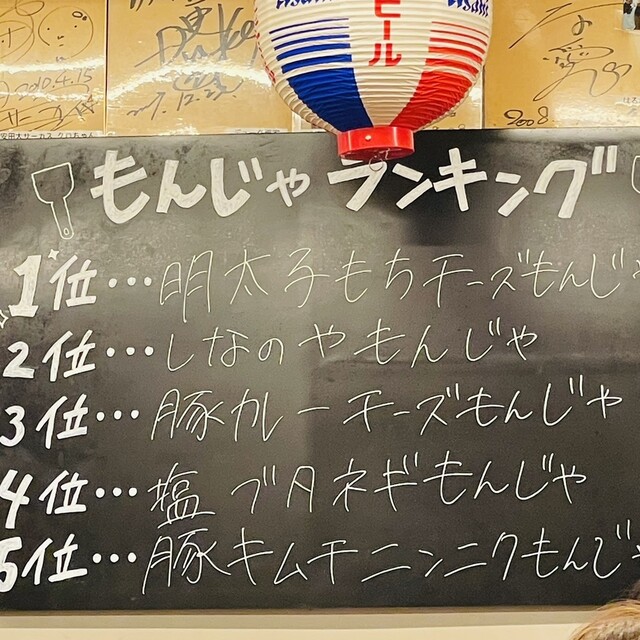 2010.4.15
安田大サーカス クロちゃん
2008
Asahi
ビール
Asahi
もんじゃランキング
1位…明太子もちチーズもんじゃ
2位…しなのやもんじゃ
3位…豚カレーチーズもんじゃ
4位…塩ブタネギもんじゃ
5位…豚キムチニンニクもんじゃ